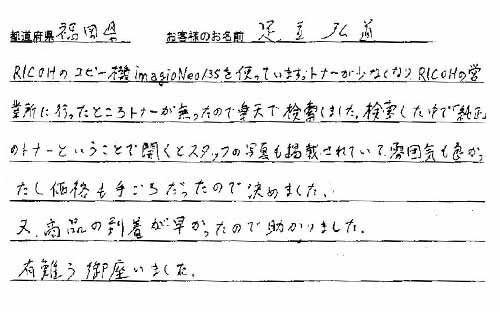 都道府県 福岡県 お客様のお名前 足立 弘前
RICOHのコピー機imagioNeo135を使っています。トナーが少なくなりRICOHの営
業所に行ったところトナーが無ったので楽天で検索しました。検索した中で「純正」
のトナーということで開くとスタッフの写真も掲載されていて、雰囲気も良かっ
たし価格も手ごろだったので決めました。
又、商品の到着が早かったので助かりました。
有難う御座いました。